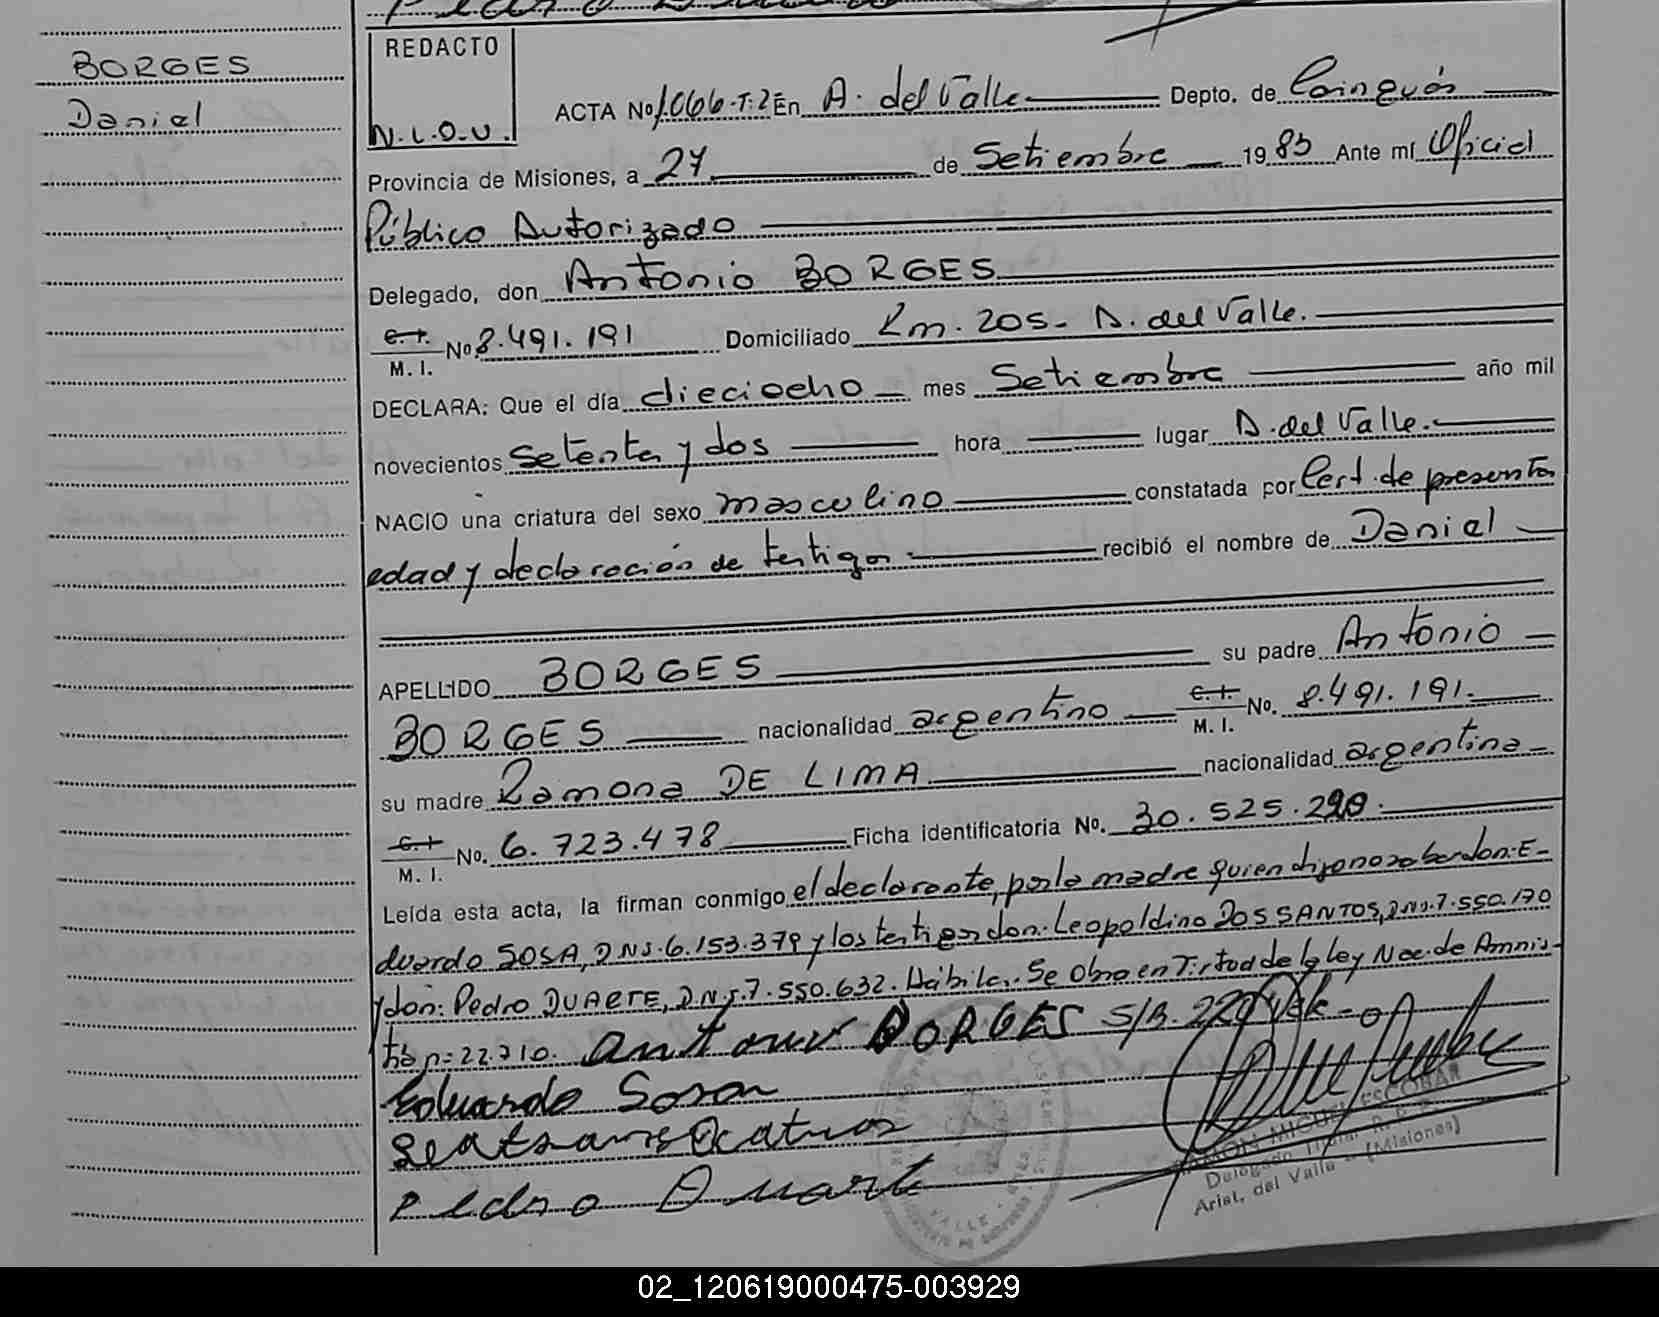 BORGES
Daniel
REDACTO
N.L.O.U.
ACTA No 1.066-T:2 En A. del Valle Depto. de Cainguás
Provincia de Misiones, a 27 de Setiembre 1983 Ante mí Oficial
Público Autorizado
Delegado, don Antonio BORGES
C. I. M. I. No 8.491.191 Domiciliado Km. 205- A. del Valle.
DECLARA: Que el día dieciocho mes Setiembre año mil
novecientos Setenta y dos hora lugar A. del Valle.
NACIO una criatura del sexo masculino constatada por Cert. de presenta
edad y declaración de testigos recibió el nombre de Daniel
APELLIDO BORGES su padre Antonio
BORGES nacionalidad argentino C. I. M. I. No. 8.491.191.
su madre Ramona DE LIMA nacionalidad argentina
C. I. M. I. No. 6.723.478 Ficha identificatoria No. 30.525.220.
Leída esta acta, la firman conmigo el declarante, por la madre quien dijo no saber don: E-
duardo SOSA, DNI. 6.153.379 y los testigos don: Leopoldino DOS SANTOS, DNI. 7.550.170
y don: Pedro DUARTE, D.N.I. 7.550.632. Hábiles. Se Obra en Virtud de la ley Nac. de Amnis-
tía nº 22.710. Antonio BORGES S/B. 220 Vale-
Eduardo Sosa
Pedro Duarte
RAMON MIGUEL ESCOBAR
Delegado Titular R. P. P.
Arist. del Valle - (Misiones)
02_120619000475-003929